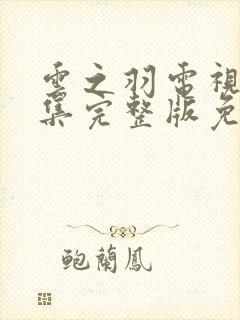 雲之羽電視
集完整版免
鲍蘭鳳